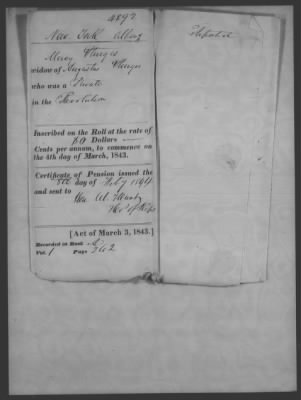 4892
New York Albany
Mercy Sturges
widow of Augustus Sturges
who was a Private
in the Revolution
Inscribed on the Roll at the rate of
60 Dollars
Cents per annum, to commence on
the 4th day of March, 1843.
Certificate of Pension issued the
day of Feby 1844
and sent to
Hon
Ho. of Reps
[Act of March 3, 1843.]
Recorded in Book
Vol. 1 Page 362